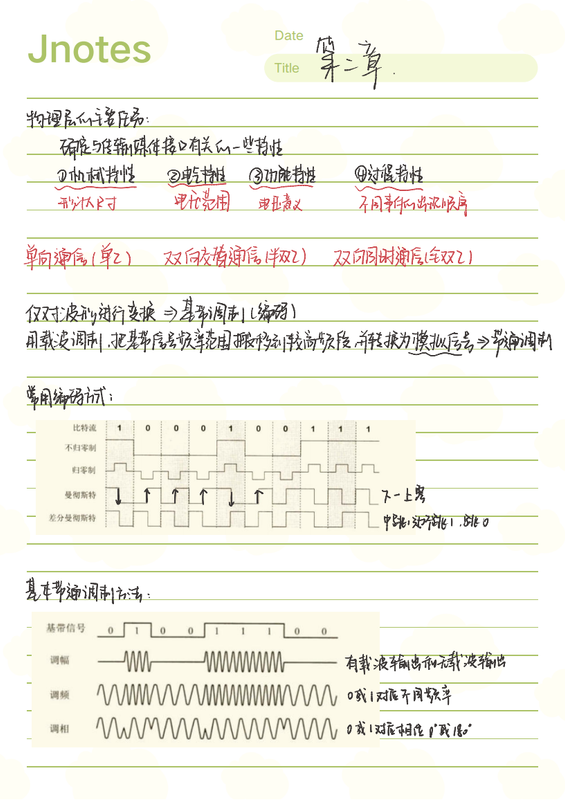 Jnotes
Date
Title 第二章.
物理层的主要任务:
确定与传输媒体接口有关的一些特性
①机械特性 ②电气特性 ③功能特性 ④过程特性
形状尺寸 电压范围 电压意义 不同事件的出现顺序
单向通信(单工) 双向交替通信(半双工) 双向同时通信(全双工)
仅对波形进行变换 ⇒ 基带调制(编码)
用载波调制,把基带信号频率范围搬移到较高频段,并转换为模拟信号 ⇒ 带通调制
常用编码方式:
比特流 1 0 0 0 1 0 0 1 1 1
不归零制
归零制
曼彻斯特 下一上零
差分曼彻斯特
基本带通调制方法:
基带信号 0 1 0 0 1 1 1 0 0
调幅 有载波输出和无载波输出
调频 0或1对应不同频率
调相 0或1对应相位0°或180°